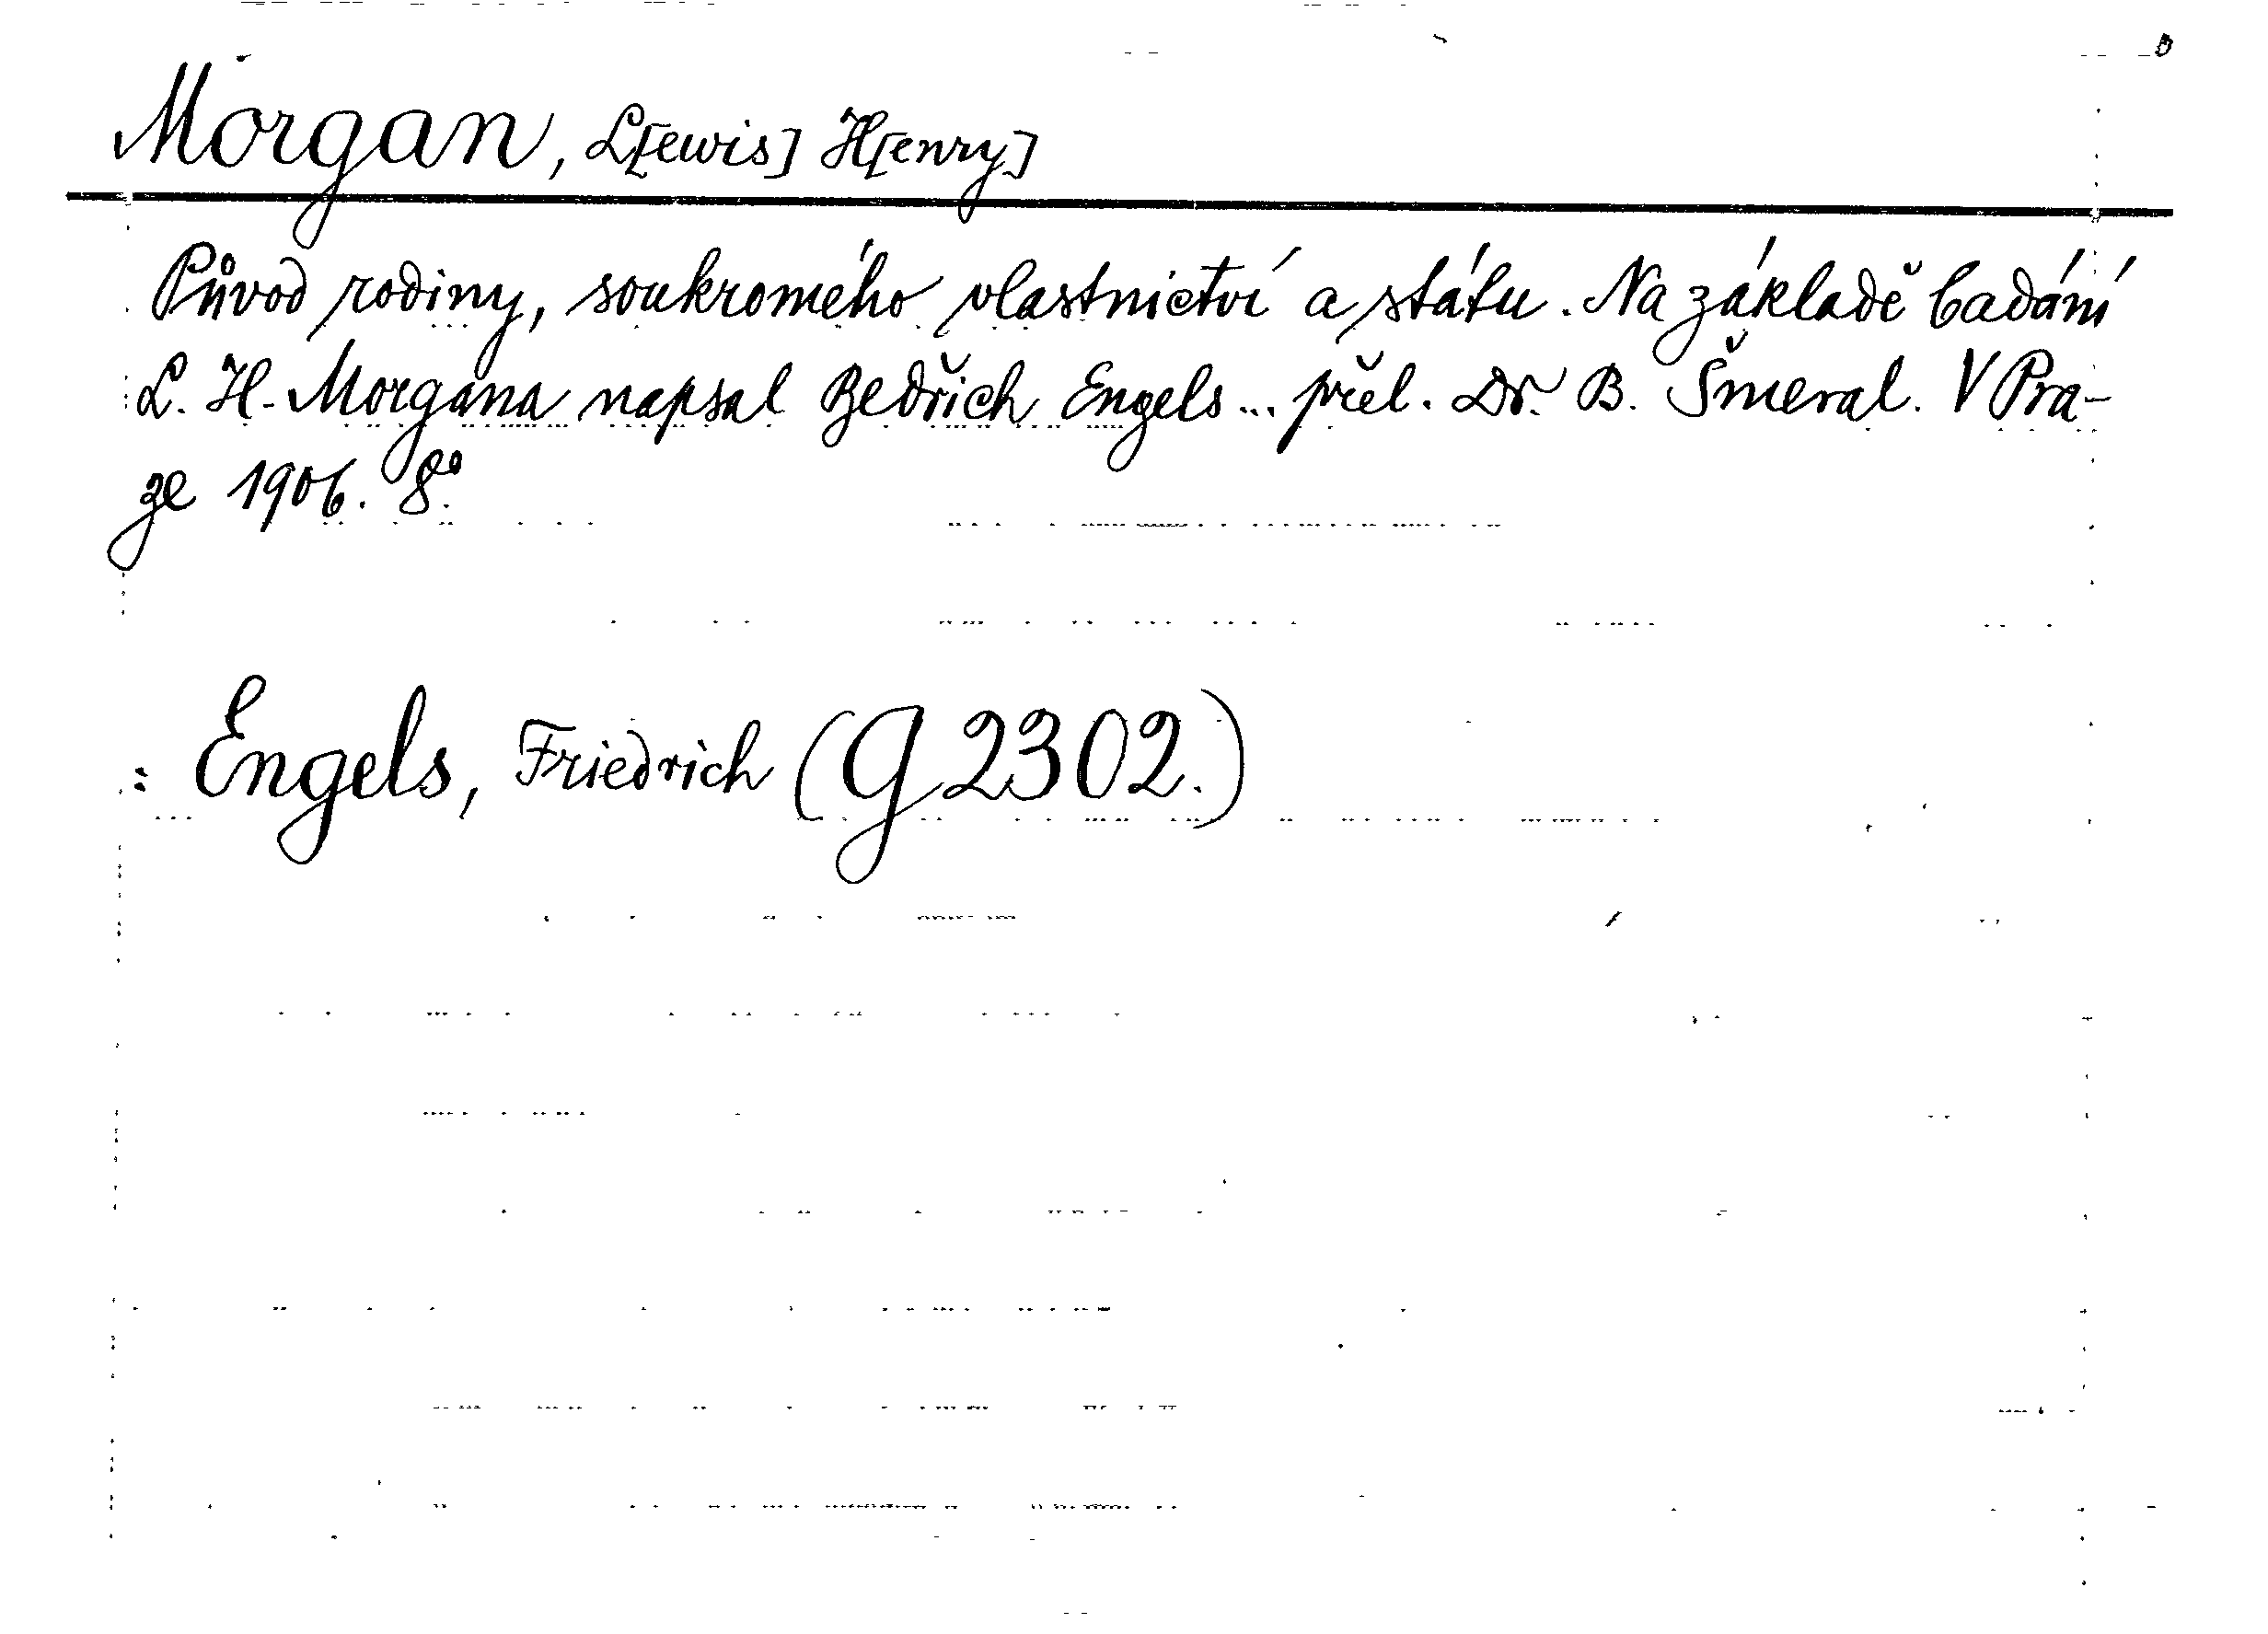 Morgan, L[ewis] H[enry]
Původ rodiny, soukromého vlastnictví a státu. Na základě badání
L. H. Morgana napsal Bedřich Engels... přel. Dr. B. Šmeral. V Pra-
ze 1906. 8°.
: Engels, Friedrich (G 2302.)